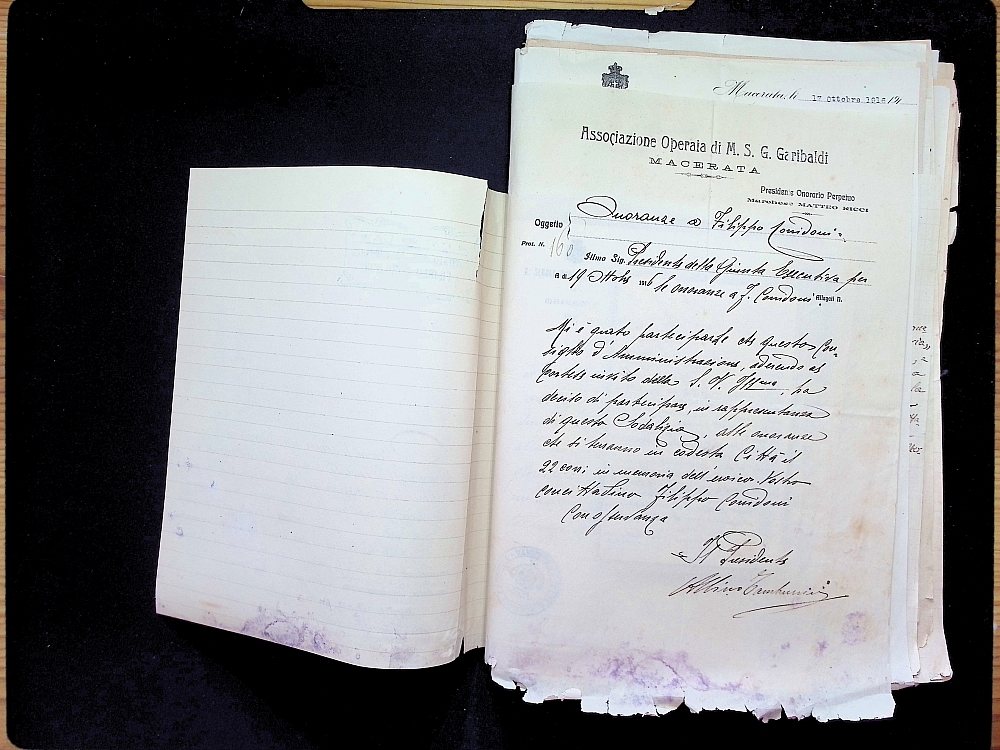 Macerata, li 17 Ottobre 1916 191
Associazione Operaia di M. S. G. Garibaldi
MACERATA
Presidente Onorario Perpetuo
Marchese MATTEO RICCI
Oggetto Onoranze a Filippo Corridoni
Prot. N. 160
Illmo Sig. Presidente della Giunta Esecutiva per
19 Ottobre 1916 le onoranze a F. Corridoni Allegati N.
Mi è grato partecipare che questo Con-
siglio d'Amministrazione, aderendo al
cortese invito della S. V. Ill.ma, ha
deciso di partecipare, in rappresentanza
di questo Sodalizio, alle onoranze
che si terranno in codesta Città il
22 corr. in memoria dell'eroico Vostro
concittadino Filippo Corridoni
Con osservanza
Il Presidente
Albino